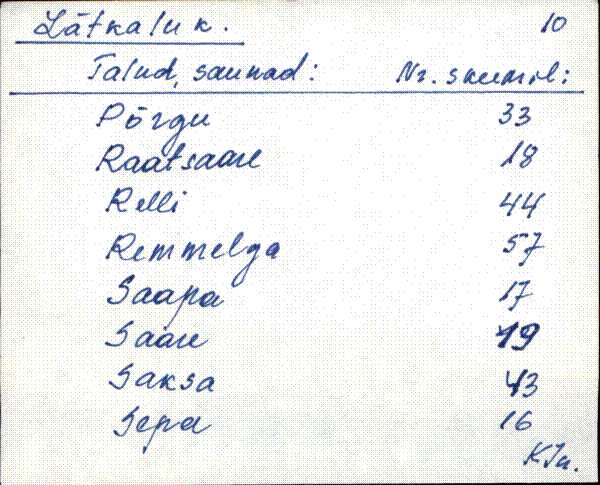 Lätkalu k. 10
Talud, saunad: Nr. skeemil:
Põrgu 33
Raatsaare 18
Relli 44
Remmelga 57
Saapa 17
Saare 19
Saksa 43
Sepa 16